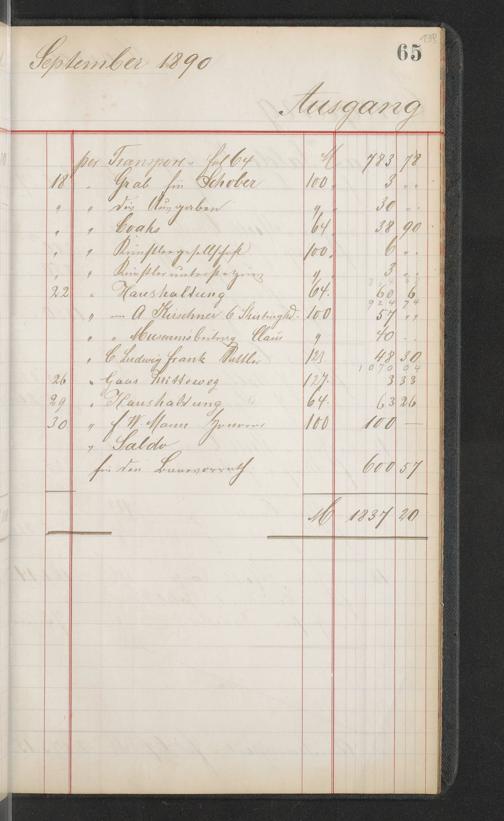 65
September 1890
Ausgang
per Transport fol 64 M 783 78
18 " Grab für Schober 100. 3 "
" " div Ausgaben " 30 "
" " Coaks 64 38 90
" " Künstlergesellschaft 100. 6 "
" " " 3 "
22 " Haushaltung 64. 60 6
" A Kirschner 100 57 "
" " Claus " 40 "
" C Ludwig frank 121 48 30
26 " 127. 3 33
29 " Haushaltung 64. 63 26
30 " f. W. Mann 100 100 —
" Saldo
für den 600 57
M 1837 20